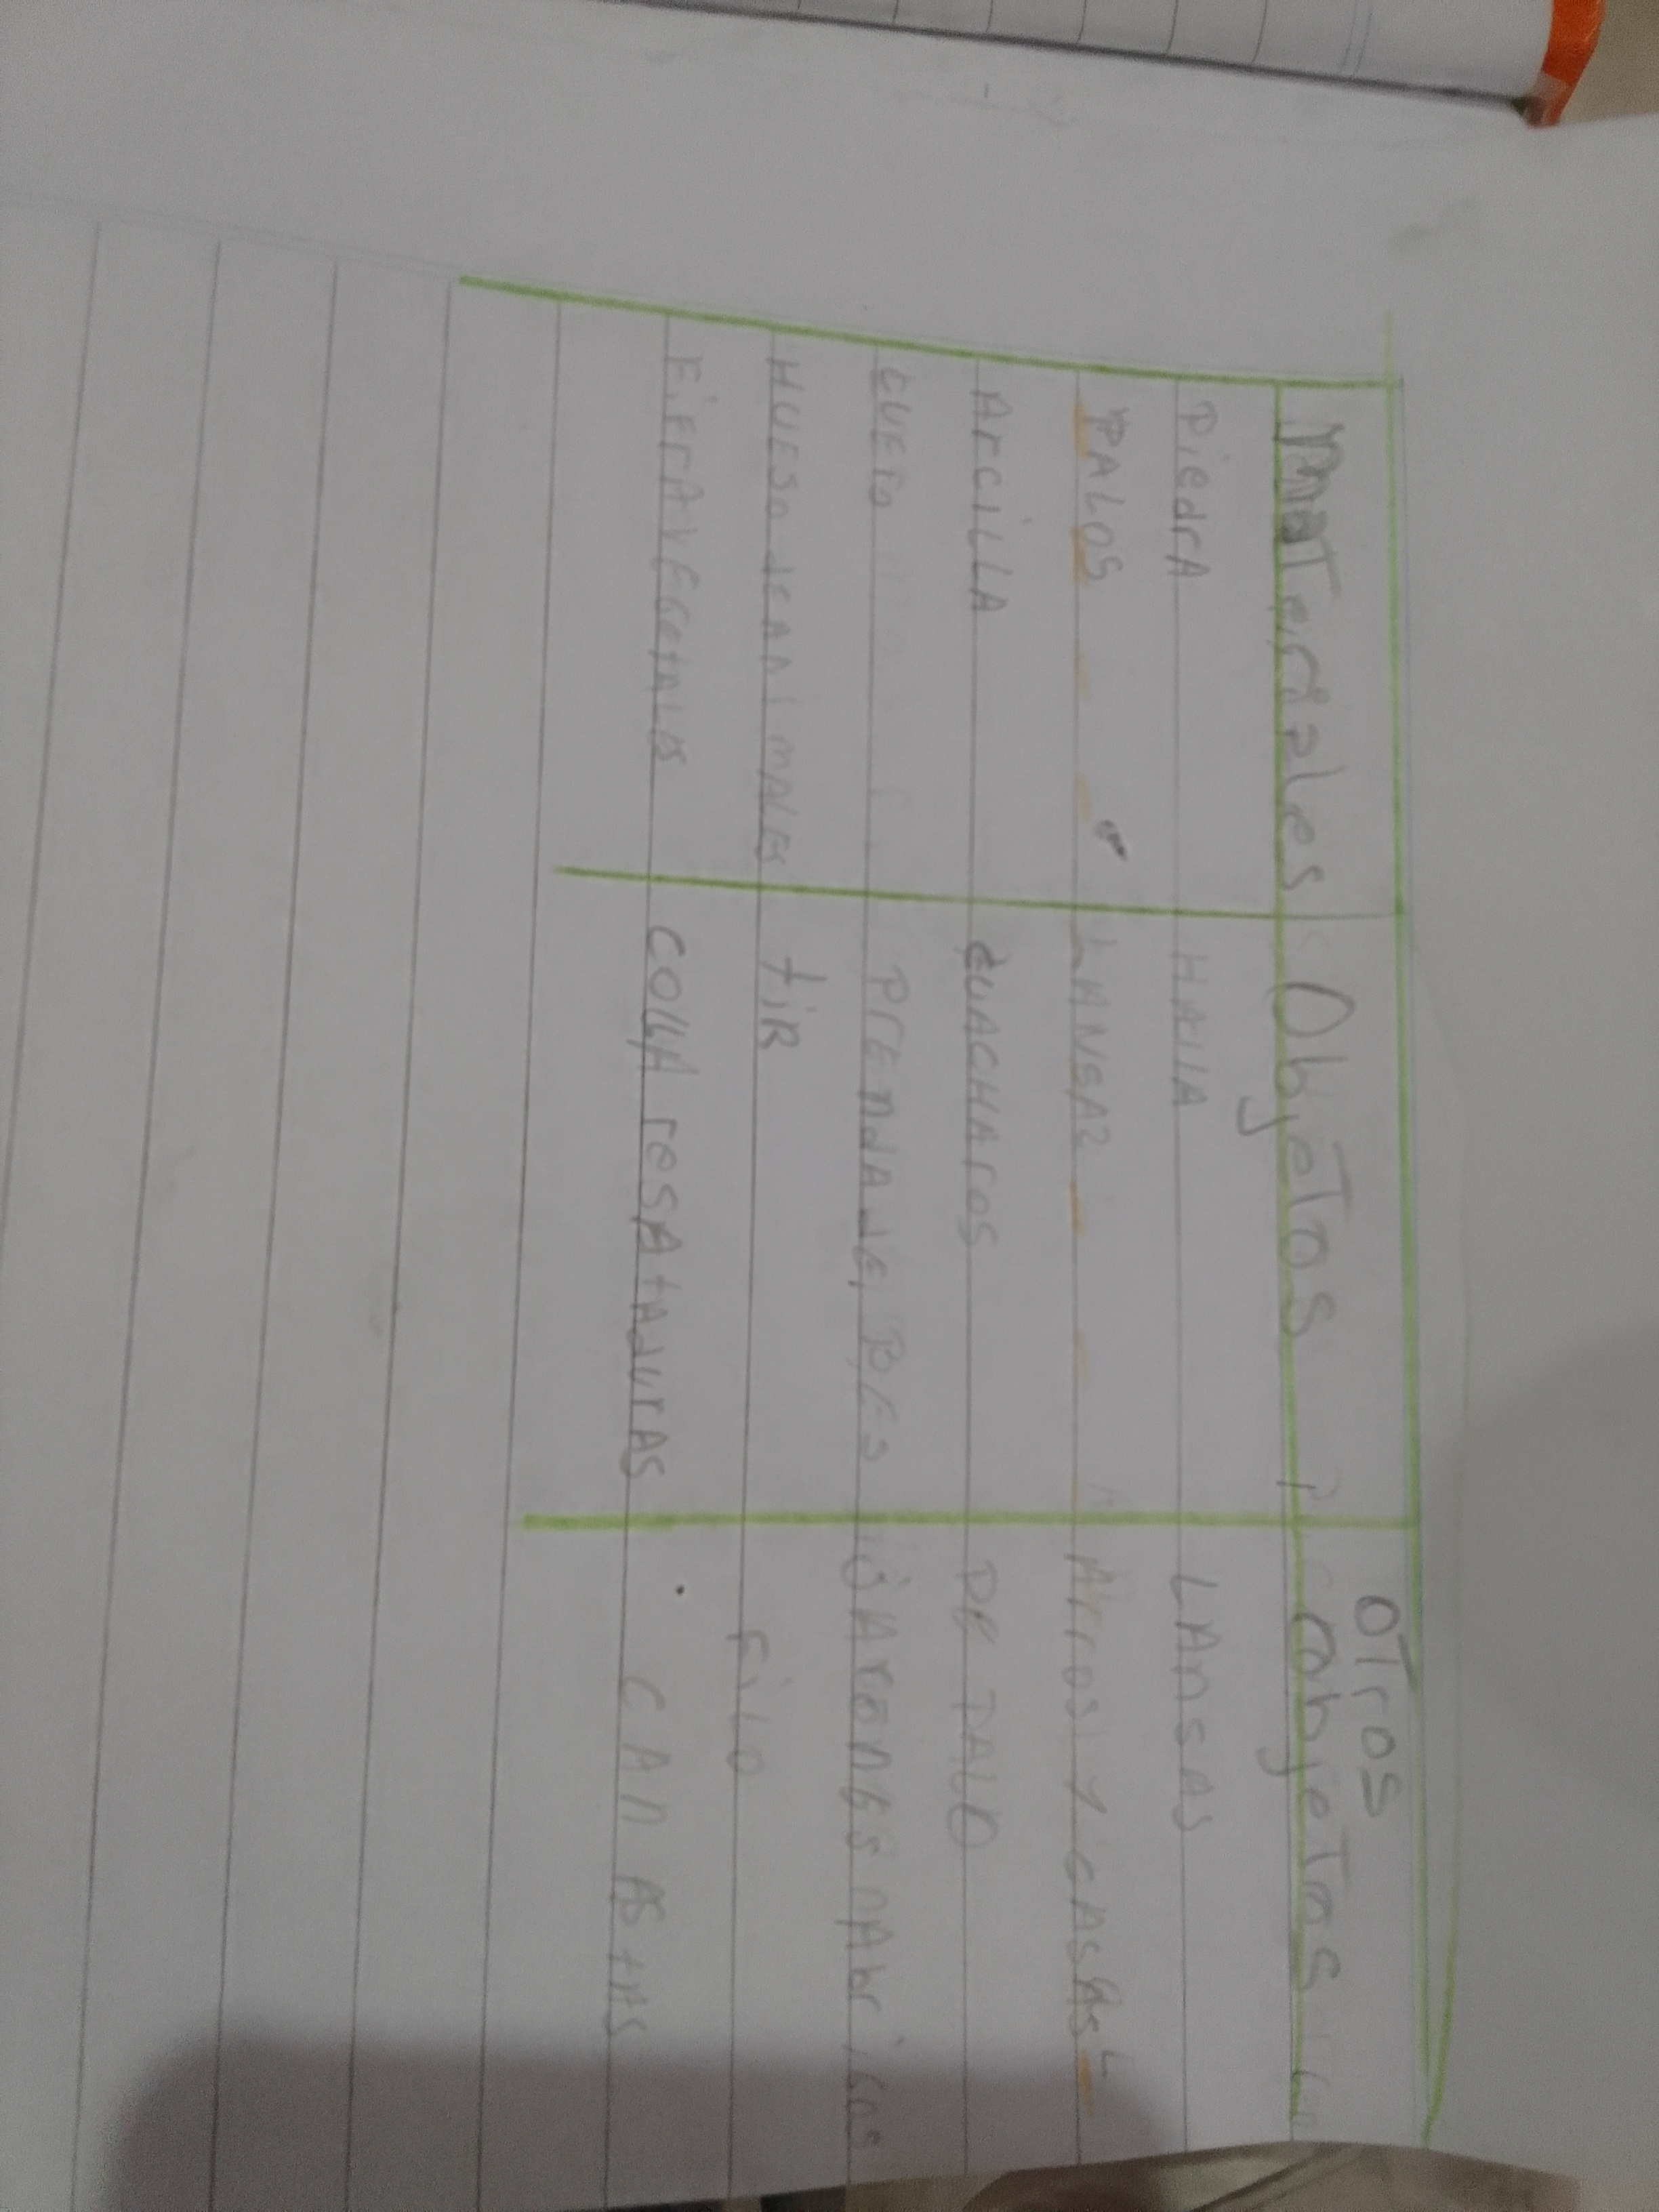 OTros
mATeriales Objetos objeTos
PiedrA HAllA LAnsAs
PALOS LANSA2 Arcos y CASAS
ArciLLA CUACHAros DE PALO
CUEro PrEndAdE,
HUESO dEANimALES tiR FiLO
FiFrAVEGetALES COllAresAtAdurAS CANAStAS